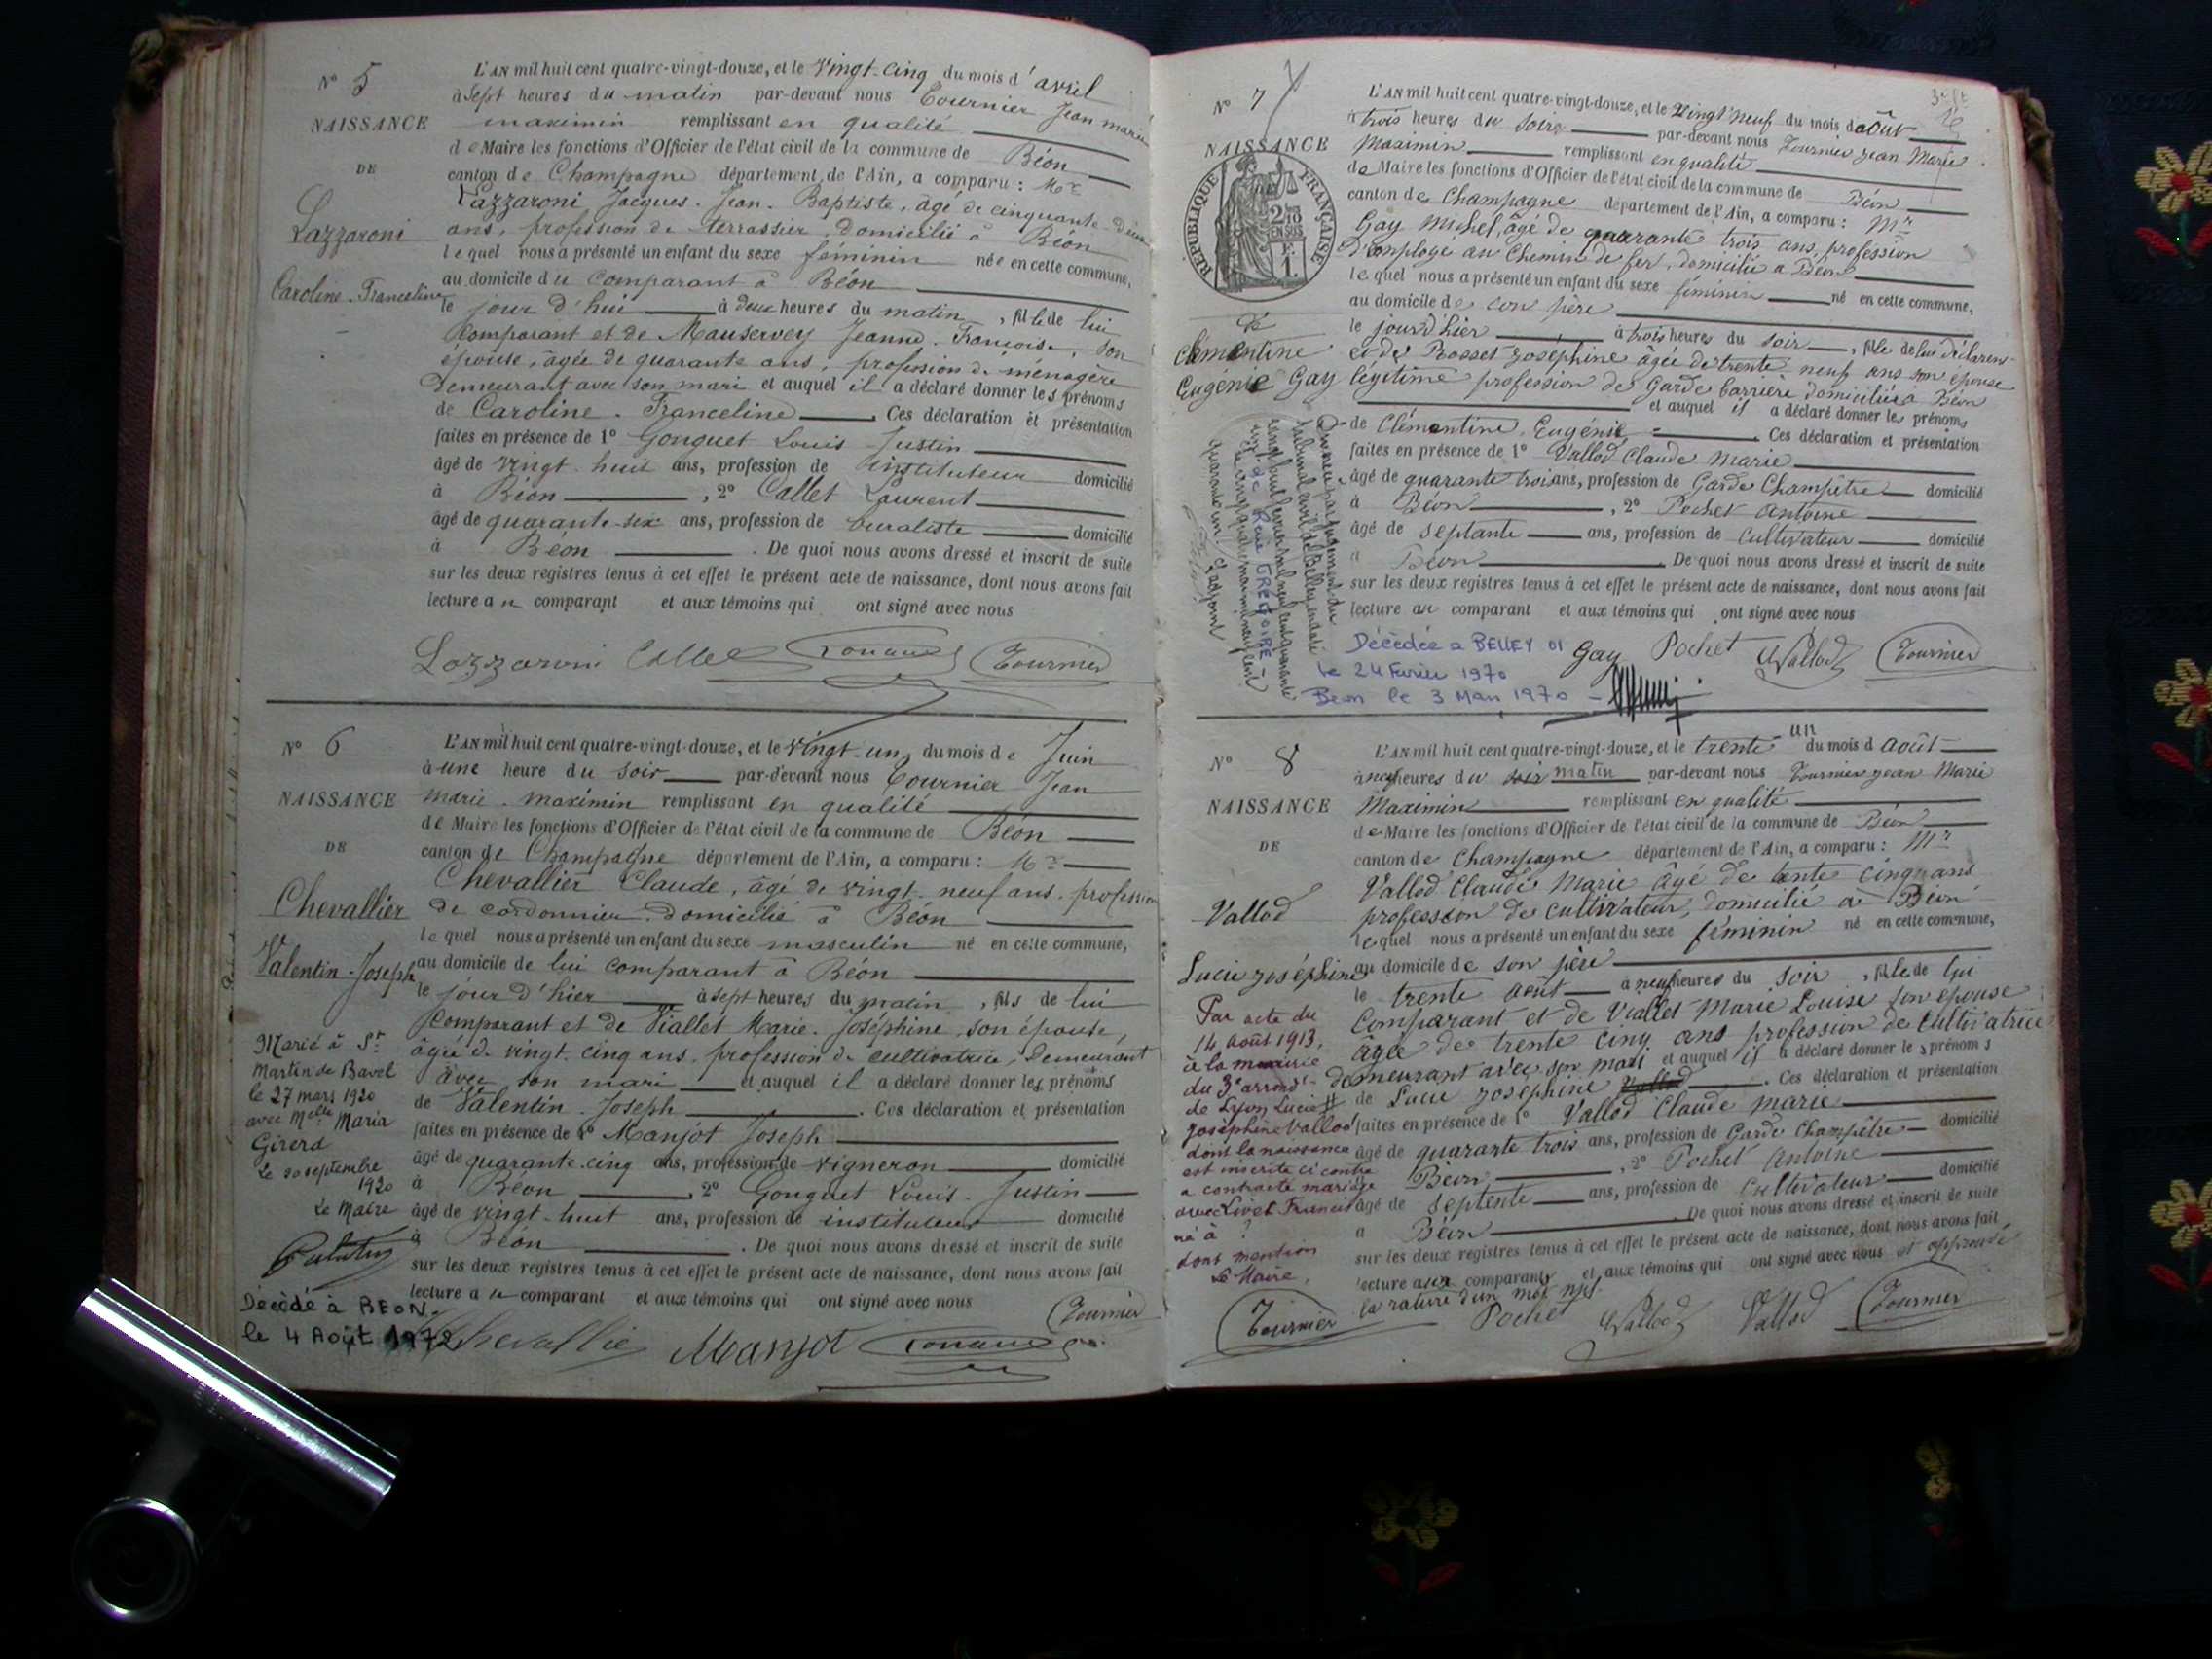 N° 5
NAISSANCE
DE
Lazzaroni
Caroline-Franceline
L'AN mil huit cent quatre-vingt-douze, et le vingt-cinq du mois d'avril
à sept heures du matin par-devant nous Tournier Jean marie
maximin remplissant en qualité
de Maire les fonctions d'Officier de l'état civil de la commune de Béon
canton de Champagne département de l'Ain, a comparu : Mr
Lazzaroni Jacques-Jean-Baptiste, âgé de cinquante-deux
ans, profession de terrassier, domicilié à Béon
lequel nous a présenté un enfant du sexe féminin née en cette commune,
au domicile du comparant à Béon
le jour d'hui à deux heures du matin, fille de lui
comparant et de Mauservey Jeanne-Françoise, son
épouse, âgée de quarante ans, profession de ménagère
demeurant avec son mari et auquel il a déclaré donner les prénoms
de Caroline-Franceline. Ces déclaration et présentation
faites en présence de 1° Gonguet Louis Justin
âgé de vingt-huit ans, profession de instituteur domicilié
à Béon, 2° Callet Laurent
âgé de quarante-six ans, profession de buraliste domicilié
à Béon. De quoi nous avons dressé et inscrit de suite
sur les deux registres tenus à cet effet le présent acte de naissance, dont nous avons fait
lecture au comparant et aux témoins qui ont signé avec nous
Lazzaroni Callet Tournier
N° 6
NAISSANCE
DE
Chevallier
Valentin-Joseph
Marié à St
Martin de Bavel
le 27 mars 1920
avec Melle Maria
Girerd
le 20 septembre
1920
Le Maire
Décédé à BEON.
le 4 Août 1972
L'AN mil huit cent quatre-vingt-douze, et le vingt-un du mois de Juin
à une heure du soir par-devant nous Tournier Jean
marie-maximin remplissant en qualité
de Maire les fonctions d'Officier de l'état civil de la commune de Béon
canton de Champagne département de l'Ain, a comparu : Mr
Chevallier Claude, âgé de vingt-neuf ans, profession
de cordonnier, domicilié à Béon
lequel nous a présenté un enfant du sexe masculin né en cette commune,
au domicile de lui comparant à Béon
le jour d'hier à sept heures du matin, fils de lui
comparant et de Viallet Marie-Joséphine, son épouse,
âgée de vingt-cinq ans, profession de cultivatrice, demeurant
avec son mari et auquel il a déclaré donner les prénoms
de Valentin-Joseph. Ces déclaration et présentation
faites en présence de 1° Manjot Joseph
âgé de quarante-cinq ans, profession de vigneron domicilié
à Béon, 2° Gonguet Louis-Justin
âgé de vingt-huit ans, profession de instituteur domicilié
à Béon. De quoi nous avons dressé et inscrit de suite
sur les deux registres tenus à cet effet le présent acte de naissance, dont nous avons fait
lecture au comparant et aux témoins qui ont signé avec nous
Tournier
Chevallier Manjot
N° 7
NAISSANCE
RÉPUBLIQUE FRANÇAISE
2/10
EN SUS
F.
1.
de
Clémentine
Eugénie Gay
L'AN mil huit cent quatre-vingt-douze, et le vingt neuf du mois d'août
à trois heures du soir par-devant nous Tournier Jean Marie
Maximin remplissant en qualité
de Maire les fonctions d'Officier de l'état civil de la commune de Béon
canton de Champagne département de l'Ain, a comparu : Mr
Gay Michel, âgé de quarante trois ans, profession
d'employé au Chemin de fer, domicilié à Béon
lequel nous a présenté un enfant du sexe féminin né en cette commune,
au domicile de son père
le jour d'hier à trois heures du soir, fille de lui déclarant
et de Bosset Joséphine âgée de trente neuf ans son épouse
légitime profession de Garde barrière domiciliée à Béon
et auquel il a déclaré donner les prénoms
de Clémentine, Eugénie. Ces déclaration et présentation
faites en présence de 1° Vallod Claude Marie
âgé de quarante trois ans, profession de Garde Champêtre domicilié
à Béon, 2° Pochet Antoine
âgé de septante ans, profession de cultivateur domicilié
à Béon. De quoi nous avons dressé et inscrit de suite
sur les deux registres tenus à cet effet le présent acte de naissance, dont nous avons fait
lecture au comparant et aux témoins qui ont signé avec nous
Gay Pochet Vallod Tournier
Décédée à BELLEY 01
le 24 Février 1970
Béon le 3 Mars 1970
N° 8
NAISSANCE
DE
Vallod
Lucie Joséphine
Par acte du
14 août 1913,
à la mairie
du 3e arrondt
de Lyon Lucie
Joséphine Vallod
dont la naissance
est inscrite ci contre
a contracté mariage
avec Livet Francis
né à ?
dont mention
Le Maire,
Tournier
L'AN mil huit cent quatre-vingt-douze, et le trente un du mois d'août
à neuf heures du soir matin par-devant nous Tournier Jean Marie
Maximin remplissant en qualité
de Maire les fonctions d'Officier de l'état civil de la commune de Béon
canton de Champagne département de l'Ain, a comparu : Mr
Vallod Claude Marie âgé de trente cinq ans
profession de cultivateur, domicilié à Béon
lequel nous a présenté un enfant du sexe féminin né en cette commune,
au domicile de son père
le trente août à neuf heures du soir, fille de lui
comparant et de Viallet Marie Louise son épouse
âgée de trente cinq ans profession de cultivatrice
demeurant avec son mari et auquel il a déclaré donner les prénoms
de Lucie Joséphine Vallod. Ces déclaration et présentation
faites en présence de 1° Vallod Claude marie
âgé de quarante trois ans, profession de Garde Champêtre domicilié
à Béon, 2° Pochet Antoine
âgé de septente ans, profession de cultivateur domicilié
à Béon. De quoi nous avons dressé et inscrit de suite
sur les deux registres tenus à cet effet le présent acte de naissance, dont nous avons fait
lecture aux comparants et aux témoins qui ont signé avec nous et approuvé
la rature d'un mot nul.
Pochet Vallod Vallod Tournier